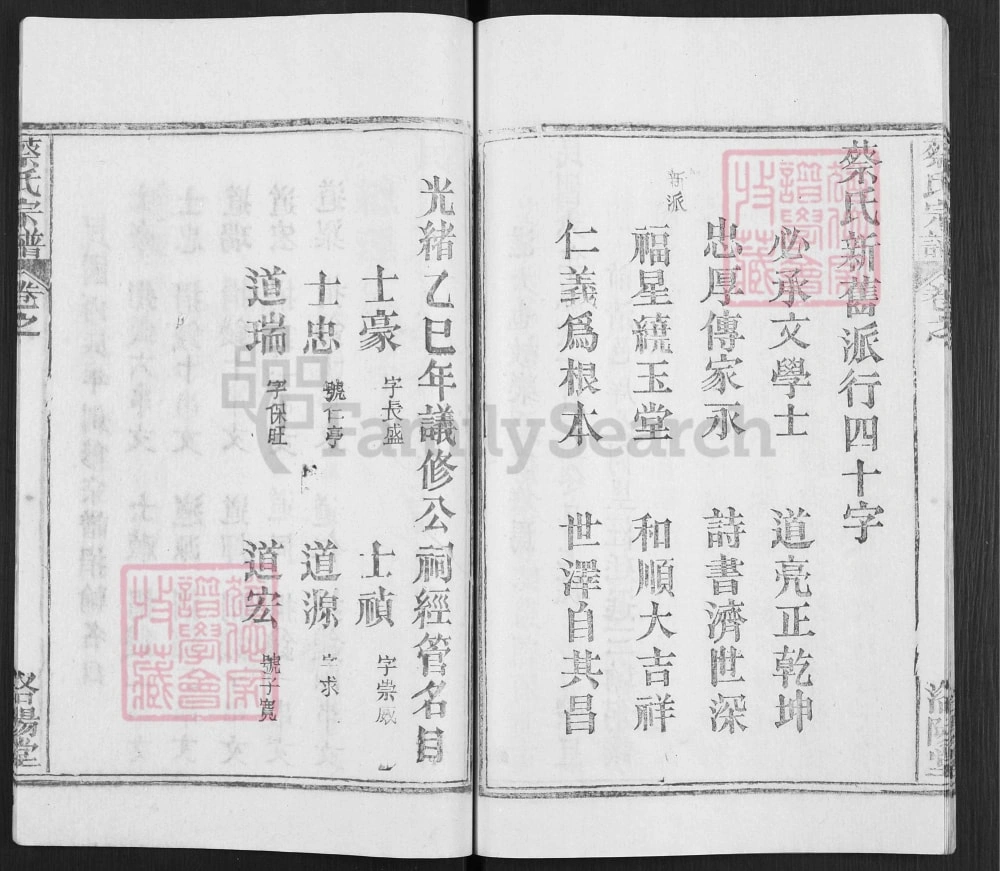 蔡氏新舊派行四十字
必承文學士 道亮正乾坤
忠厚傳家永 詩書濟世深
新派
福星繞玉堂 和順大吉祥
仁義為根本 世澤自共昌
光緒乙巳年議修公祠經管名目
士豪 字長盛 士禎 字崇威
士忠 號仁亭 道源 字求
道瑞 字保旺 道宏 號子寬
蔡氏宗譜 卷之 洛陽堂
蔡氏宗譜 卷之 洛陽堂
FamilySearch